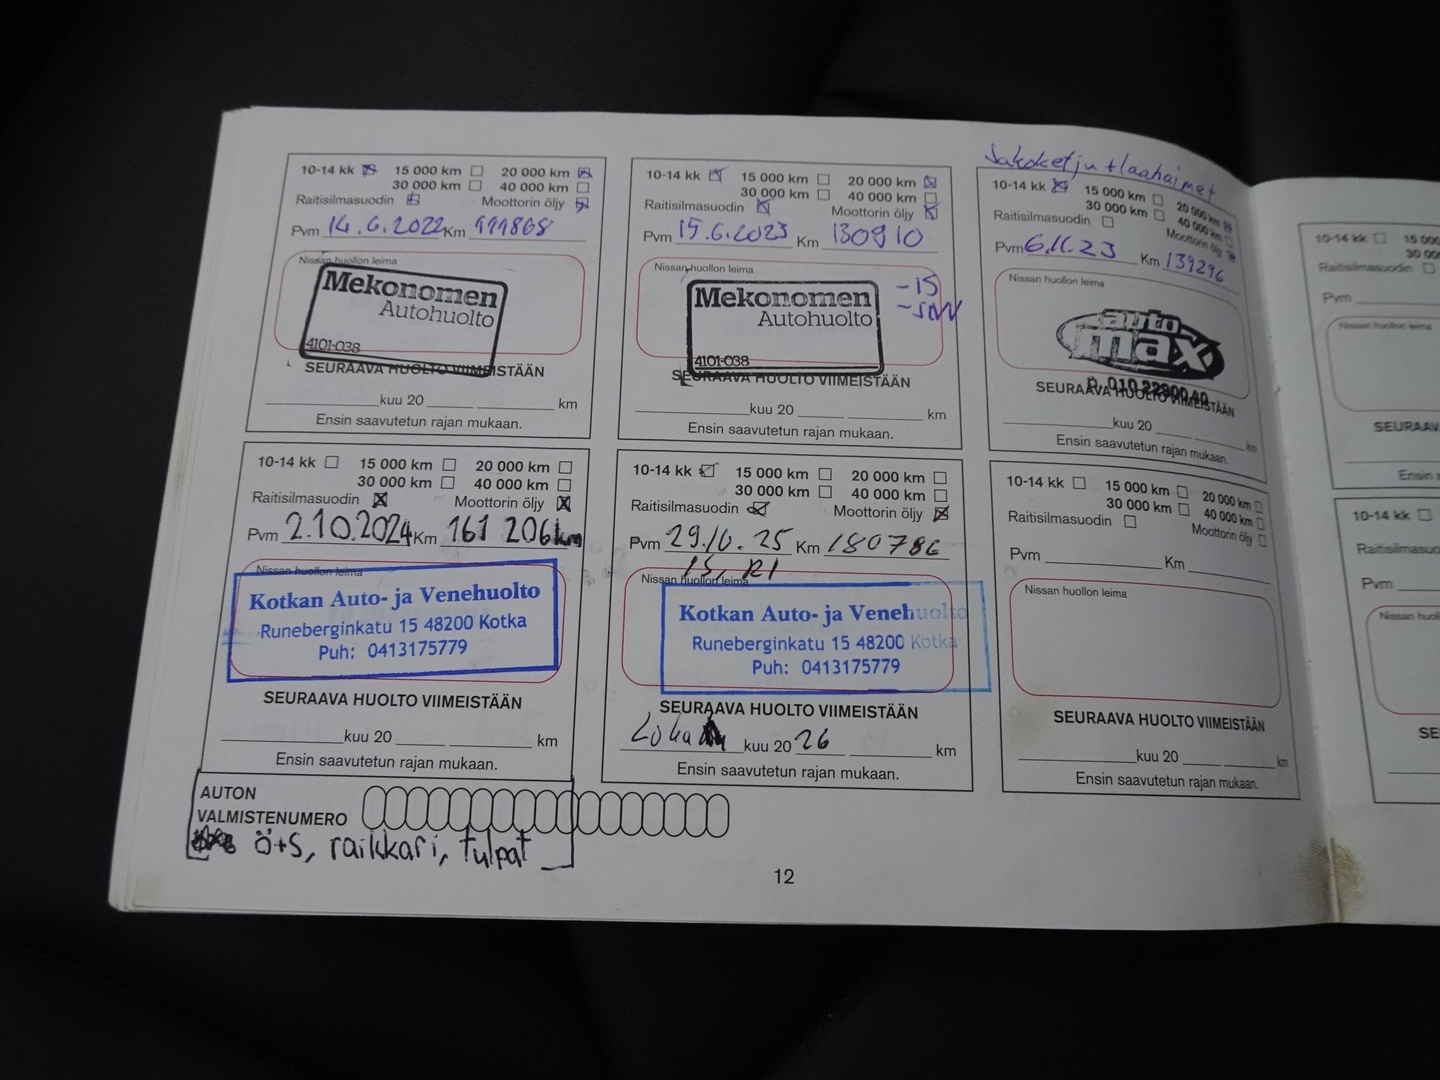 10-14 kk 15 000 km 20 000 km
30 000 km 40 000 km
Raitisilmasuodin Moottorin öljy
Pvm 14.6.2022 Km 111868
Nissan huollon leima
Mekonomen
Autohuolto
4101-038
SEURAAVA HUOLTO VIIMEISTÄÄN
kuu 20 km
Ensin saavutetun rajan mukaan.
10-14 kk 15 000 km 20 000 km
30 000 km 40 000 km
Raitisilmasuodin Moottorin öljy
Pvm 15.6.2023 Km 130910
Nissan huollon leima
Mekonomen
Autohuolto
4101-038
-15
SEURAAVA HUOLTO VIIMEISTÄÄN
kuu 20 km
Ensin saavutetun rajan mukaan.
Jakoketju + laahaimet
10-14 kk 15 000 km 20 000 km
30 000 km 40 000 km
Raitisilmasuodin Moottorin öljy
Pvm 6.11.23 Km 139296
Nissan huollon leima
auto
max
SEURAAVA HUOLTO VIIMEISTÄÄN
kuu 20 km
Ensin saavutetun rajan mukaan.
10-14 kk 15 000 km 20 000 km
30 000 km 40 000 km
Raitisilmasuodin Moottorin öljy
Pvm 2.10.2024 Km 161 206km
Nissan huollon leima
Kotkan Auto- ja Venehuolto
Runeberginkatu 15 48200 Kotka
Puh: 0413175779
SEURAAVA HUOLTO VIIMEISTÄÄN
kuu 20 km
Ensin saavutetun rajan mukaan.
10-14 kk 15 000 km 20 000 km
30 000 km 40 000 km
Raitisilmasuodin Moottorin öljy
Pvm 29.10.25 Km 180786
Nissan huollon leima
Kotkan Auto- ja Venehuolto
Runeberginkatu 15 48200 Kotka
Puh: 0413175779
SEURAAVA HUOLTO VIIMEISTÄÄN
Loka kuu 20 26 km
Ensin saavutetun rajan mukaan.
10-14 kk 15 000 km 20 000 km
30 000 km 40 000 km
Raitisilmasuodin Moottorin öljy
Pvm Km
Nissan huollon leima
SEURAAVA HUOLTO VIIMEISTÄÄN
kuu 20 km
Ensin saavutetun rajan mukaan.
AUTON
VALMISTENUMERO
ö+s, raikkari, tulpat
12
10-14 kk 15 000
30 00
Raitisilmasuodin
Pvm
Nissan huollon leima
SEURAAV
Ensin s
10-14 kk 15 0
30 0
Raitisilmasuo
Pvm
Nissan huol
SE